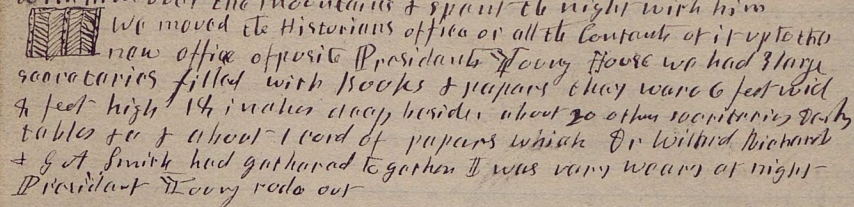 over the mountains & spent the night with him
We moved the Historians office or all the Contents of it up to the
new office opposite Presidents Young House we had 3 large
secretaries filled with Books & papers they ware 6 feet wid
feet high 18 inches deep besides about 20 other secritaries Desks
tables &c & about 1 cord of papers which Dr Willard Richards
& G A Smith had gathered together I was vary weary at night
President Young rode out